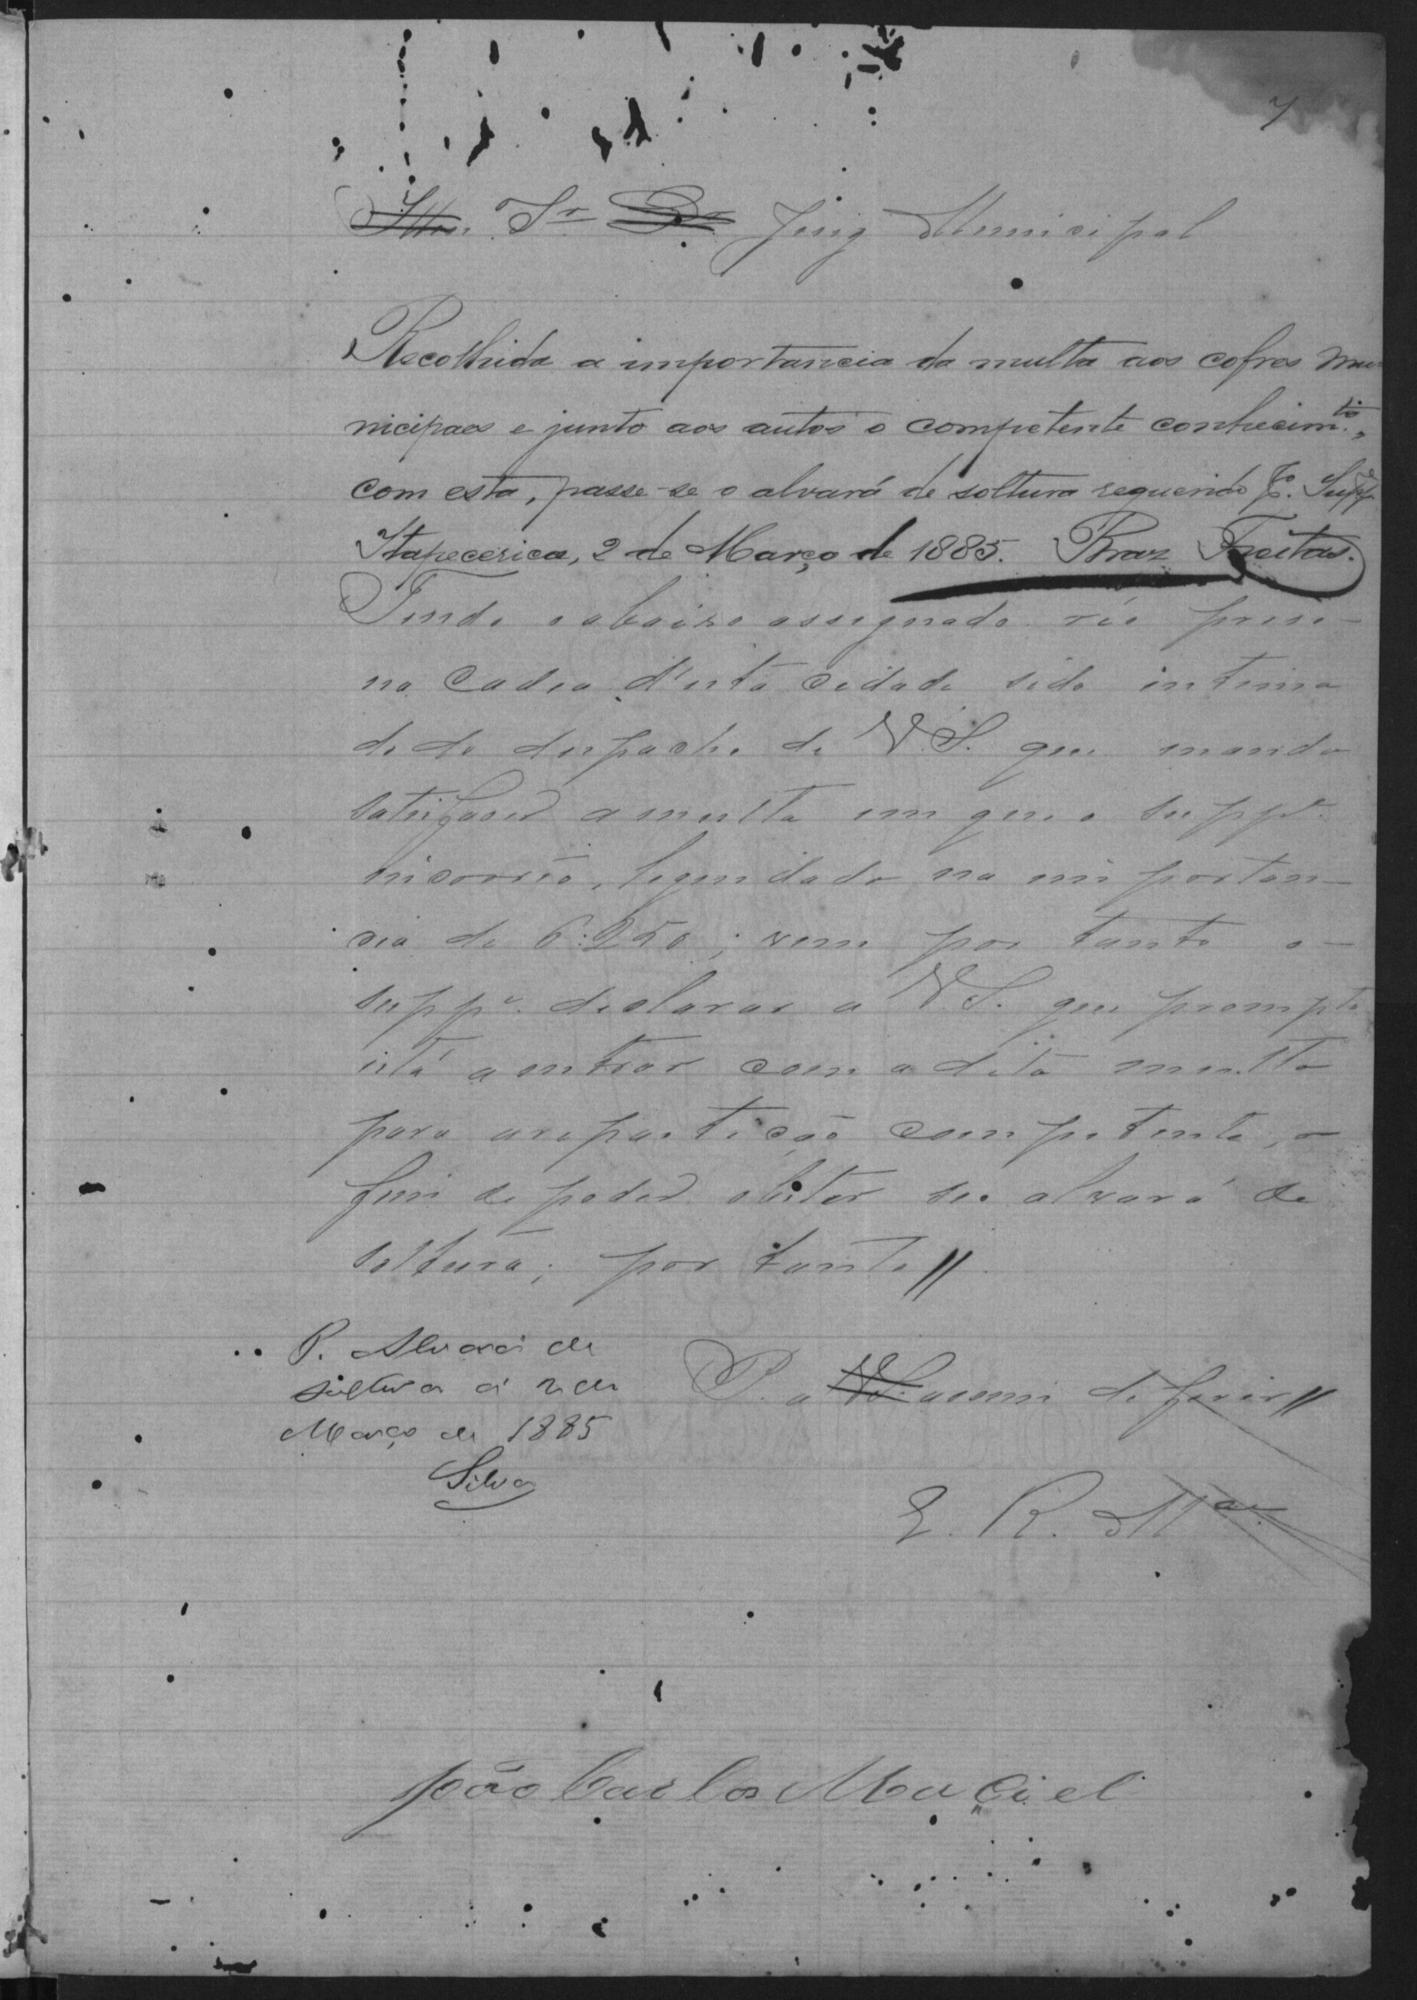 7
Illmo. Sr. Dr. Juiz Municipal
Recolhida a importancia da multa aos cofres mu-
nicipaes e junto aos autos o competente conhecim.to,
com esta, passe-se o alvará de soltura requerido p. Supp.e
Itapecerica, 2 de Março de 1885. Braz Freitas.
Tendo o abaixo assignado réo preso
na Cadea d'esta cidade sido intima
do do despacho de V.S. que manda
satisfazer a multa em que o supp.e
incorreo, liquidado na importan-
cia de 6:250; vem por tanto o
supp.e declarar a V.S. que prompto
está a entrar com a dita multa
para a repartição competente, a
fim de poder obter seo alvará de
soltura; por tanto //
P. Alvará de
soltura á 2 de
Março de 1885
Silva
P. a V.S. assim deferir //
E. R. M.ce
João Carlos Maciel